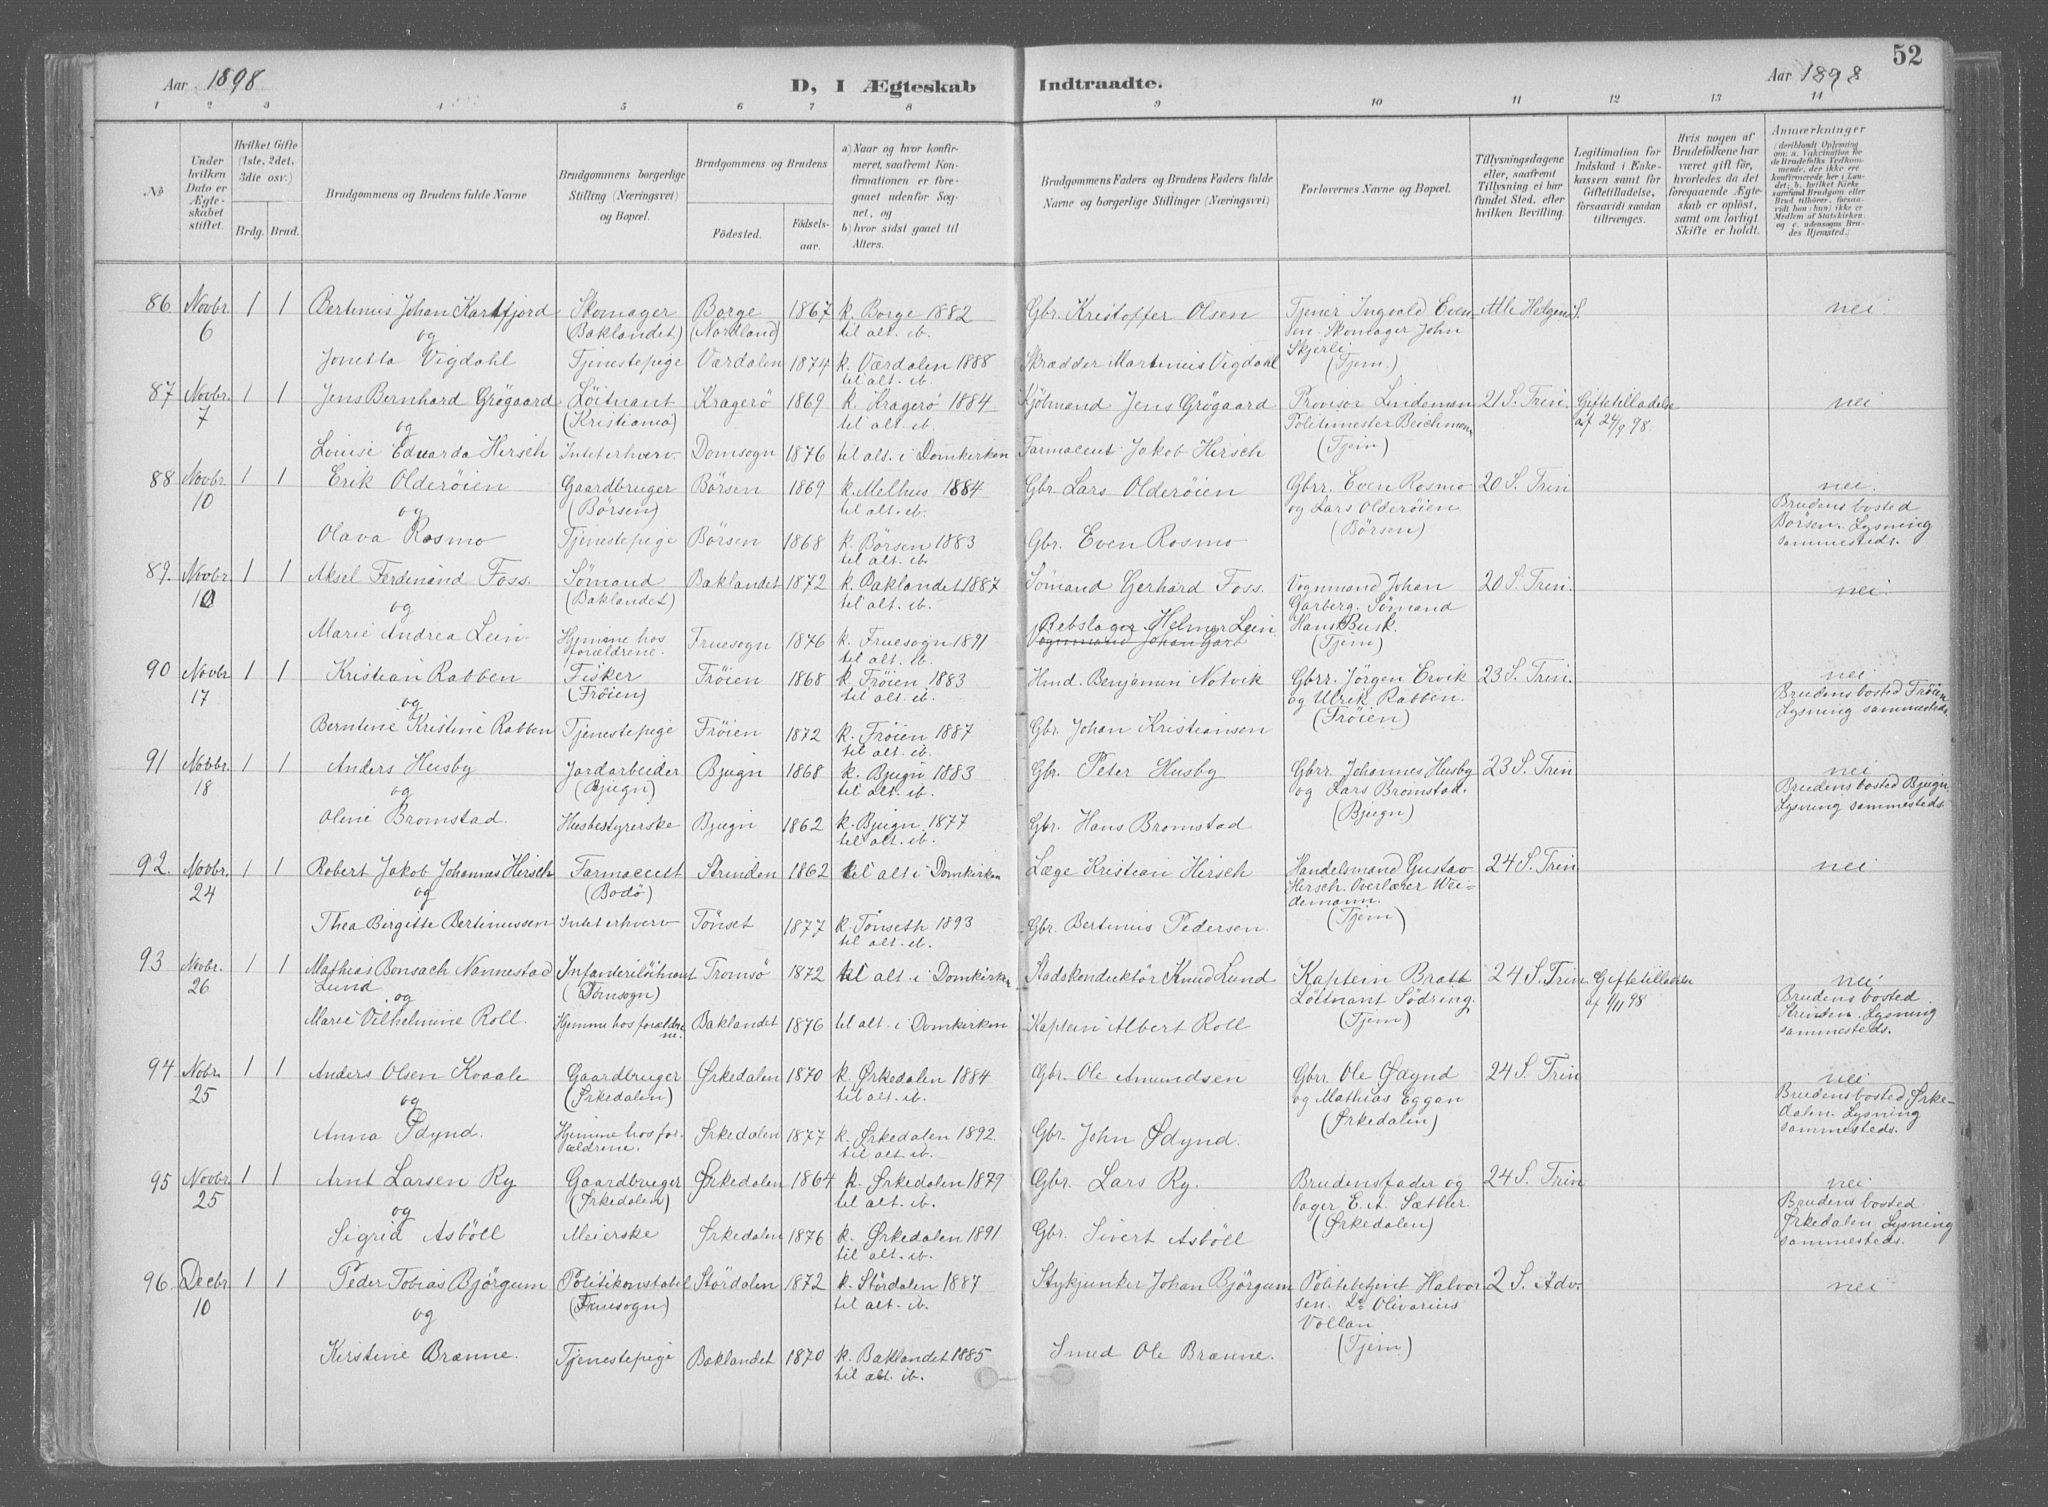 52
Aar 1898
D, I Ægteskab Indtraadte.
Aar 1898
1 2 3 4 5 6 7 8 9 10 11 12 13 14
No
Under hvilken Dato er Ægteskabet stiftet.
Hvilket Gifte (1ste, 2det, 3die osv.)
Brdg. Brud.
Brudgommens og Brudens fulde Navne
Brudgommens borgerlige Stilling (Næringsvei) og Bopæl.
Brudgommens og Brudens
Fødested.
Fødselsaar.
a) Naar og hvor konfirmeret, saafremt Konfirmationen er foregaaet udenfor Sognet, og
b) hvor sidst gaaet til Alters.
Brudgommens Faders og Brudens Faders fulde Navne og borgerlige Stillinger (Næringsvei)
Forlovernes Navne og Bopæl.
Tillysningsdagene eller, saafremt Tillysning ei har fundet Sted, efter hvilken Bevilling.
Legitimation for Indskud i Enkekassen samt for Giftetilladelse, forsaavidt saadan tiltrænges.
Hvis nogen af Brudefolkene har været gift før, hvorledes da det foregaaende Ægteskab er opløst, samt om lovligt Skifte er holdt.
Anmærkninger
(deriblandt Oplysning om: a. Vakcination for de Brudefolks Vedkommende, der ikke ere konfirmerede her i Landet; b. hvilket Kirkesamfund Brudgom eller Brud tilhører, forsaavidt han (hun) ikke er Medlem af Statskirken, og c. udensogns Brudes Hjemsted.)
86 Novbr. 6 1 1 Bertinus Johan Kartfjord Skomager (Baklandet) Borge (Nordland) 1867 k. Borge 1882 til alt. ib. Gbr. Kristoffer Olsen Tjener Ingvald Evensen. Skomager John Skjerli (Tjem.) Alle Helgens S. nei
og
Jonetta Vigdahl Tjenestepige Værdalen 1874 k. Værdalen 1888 til alt. ib. Skrædder Martinus Vigdahl
87 Novbr. 7 1 1 Jens Bernhard Grøgaard Løitnant (Kristiania) Kragerö 1869 k. Kragerö 1884 til alt. ib. Kjöbmand Jens Grøgaard Provisor Lindeman Politimester Beichmann (Tjem) 21 S. Trin. Giftetilladelse af 24/9 98. nei
og
Louise Eduarda Hirsch Intet erhverv. Domsogn 1876 til alt. i Domkirken Farmaceut Jakob Hirsch
88 Novbr. 10 1 1 Erik Olderöien Gaardbruger (Börsen) Börsen 1869 k. Melhus 1884 til alt. ib. Gbr. Lars Olderöien Gbrr. Even Rosmo og Lars Olderöien (Börsen) 20 S. Trin nei. Brudens bosted Börsen. Lysning sammesteds.
og
Olava Rosmo Tjenestepige Börsen 1868 k. Börsen 1883 til alt. ib. Gbr. Even Rosmo
89. Novbr. 10 1 1 Aksel Ferdinand Foss. Sömand (Baklandet) Baklandet 1872 k. Baklandet 1887 til alt. ib. Sömand Gerhard Foss. Vognmand Johan Garberg. Sömand Hans Busk. (Tjem) 20 S. Trin. nei.
og
Marie Andrea Lein Hjemme hos forældrene. Fruesogn 1876 k. Fruesogn 1891 til alt. ib. Rebslager Helmer Lein Vognmand Johan Garb
90 Novbr. 17 1 1 Kristian Rabben Fisker (Fröien) Fröien 1868 k. Fröien 1883 til alt. ib. Hmd. Benjamin Notvik Gbrr. Jörgen Ervik og Ulrik Rabben. (Fröien) 23 S. Trin. nei Brudens bosted Fröien Lysning sammesteds
og
Berntine Kristine Rabben Tjenestepige Fröien 1872 k. Fröien 1887 til alt. ib. Gbr. Johan Kristiansen
91 Novbr. 18 1 1 Anders Husby Jordarbeider (Bjugn) Bjugn 1868 k. Bjugn 1883 til alt. ib. Gbr. Peter Husby Gbrr. Johannes Husby og Lars Bromstad. (Bjugn) 23 S. Trin nei Brudens bosted Bjugn. Lysning sammesteds.
og
Oline Bromstad. Husbestyrerske Bjugn 1862 k. Bjugn 1877 til alt. ib. Gbr. Hans Bromstad
92. Novbr. 24 1 1 Robert Jakob Johannes Hirsch Farmaceut (Bodö) Strinden 1862 til alt i Domkirken Læge Kristian Hirsch Handelsmand Gustav Hirsch. Overlærer Weidemann. (Tjem) 24 S. Trin nei
og
Thea Birgitte Bertinussen Intet erhverv Tönset 1877 k. Tönseth 1893 til alt. ib. Gbr. Bertinus Pedersen.
93 Novbr. 26 1 1 Mathias Bonsach Nannestad Lund Infanteriløitnant (Domsogn) Tromsö 1872 til alt i Domkirken Stadskonduktör Knud Lund Kaptein Bratt Löitnant Södring. (Tjem) 24 S. Trin Giftetilladelse af 1/11 98 nei Brudens bosted Strinden. Lysning sammesteds.
og
Marie Vilhelmine Roll. Hjemme hos forældrene. Baklandet 1876 til alt. i Domkirken Kaptein Albert Roll
94 Nobr. 25 1 1 Anders Olsen Kvaale Gaardbruger (Ørkedalen) Ørkedalen 1870 k. Ørkedalen 1884 til alt. ib. Gbr. Ole Amundsen Gbrr Ole Ødynd og Mathias Eggan (Ørkedalen) 24 S. Trin nei Brudens bosted Ørkedalen. Lysning sammesteds.
og
Anna Ødynd. Hjemme hos forældrene. Ørkedalen 1877 k. Ørkedalen 1892. til alt. ib. Gbr. John Ødynd.
95 Novbr 25 1 1 Arnt Larsen Ry Gaardbruger (Ørkedalen) Ørkedalen 1864 k. Ørkedalen 1879 til alt. ib. Gbr. Lars Ry. Brudens fader og bager E. A. Sæther. (Ørkedalen) 24 S. Trin nei Brudens bosted Ørkedalen Lysning sammesteds.
og
Sigrid Asböll Meierske Ørkedalen 1876 k. Ørkedalen 1891 til alt. ib. Gbr. Sivert Asböll
96. Decbr 10 1 1 Peder Tobias Björgum Politikonstabel (Fruesogn) Stördalen 1872 k. Stördalen 1887 til alt. ib. Stykjunker Johan Björgum Politibetjent Halvorsen. Do Olivarius Vollan (Tjem) 2 S. Adv. nei
og
Kirstine Brænne. Tjenestepige Baklandet 1870 k. Baklandet 1885 til alt. ib. Smed Ole Brænne.